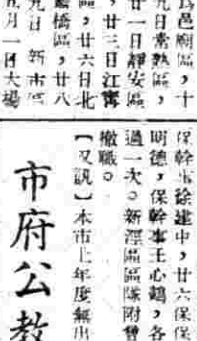 爲邑廟區，十
九日常熟區，
廿一日靜安區
，廿三日江寗
區，廿六日北
橋區，廿八
九日新市區
五月一日大場
保幹事徐建中，廿六保保
明德，保幹事王心鶴，各
過一次。新涇區區隊附曾
撤職。
【又訊】本市上年度無出
市府公教